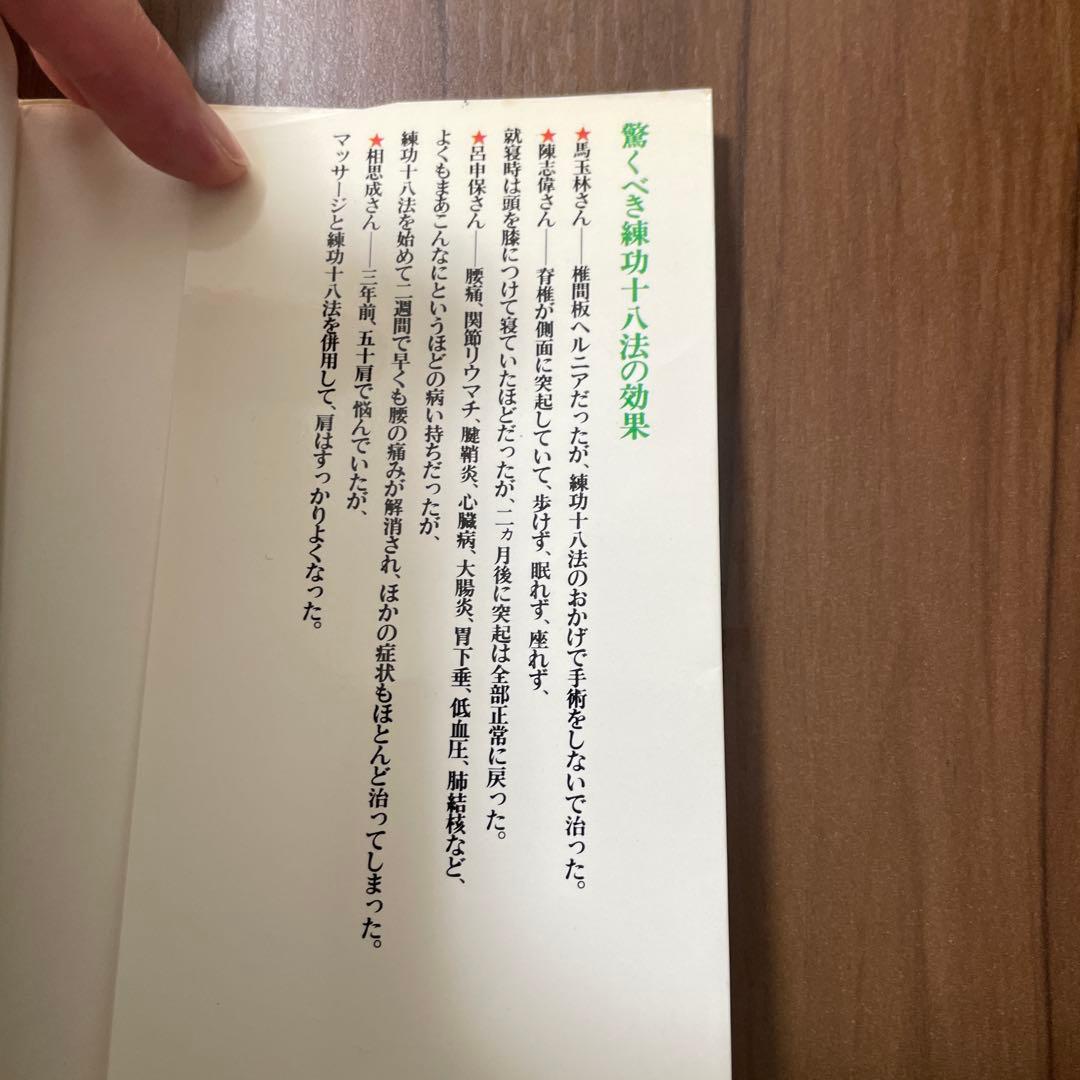 驚くべき練功十八法の効果
★馬玉林さん――椎間板ヘルニアだったが、練功十八法のおかげで手術をしないで治った。
★陳志偉さん――脊椎が側面に突起していて、歩けず、眠れず、座れず、
就寝時は頭を膝につけて寝ていたほどだったが、二ヵ月後に突起は全部正常に戻った。
★呂申保さん――腰痛、関節リウマチ、腱鞘炎、心臓病、大腸炎、胃下垂、低血圧、肺結核など、
よくもまあこんなにというほどの病い持ちだったが、
練功十八法を始めて二週間で早くも腰の痛みが解消され、ほかの症状もほとんど治ってしまった。
★相思成さん――三年前、五十肩で悩んでいたが、
マッサージと練功十八法を併用して、肩はすっかりよくなった。